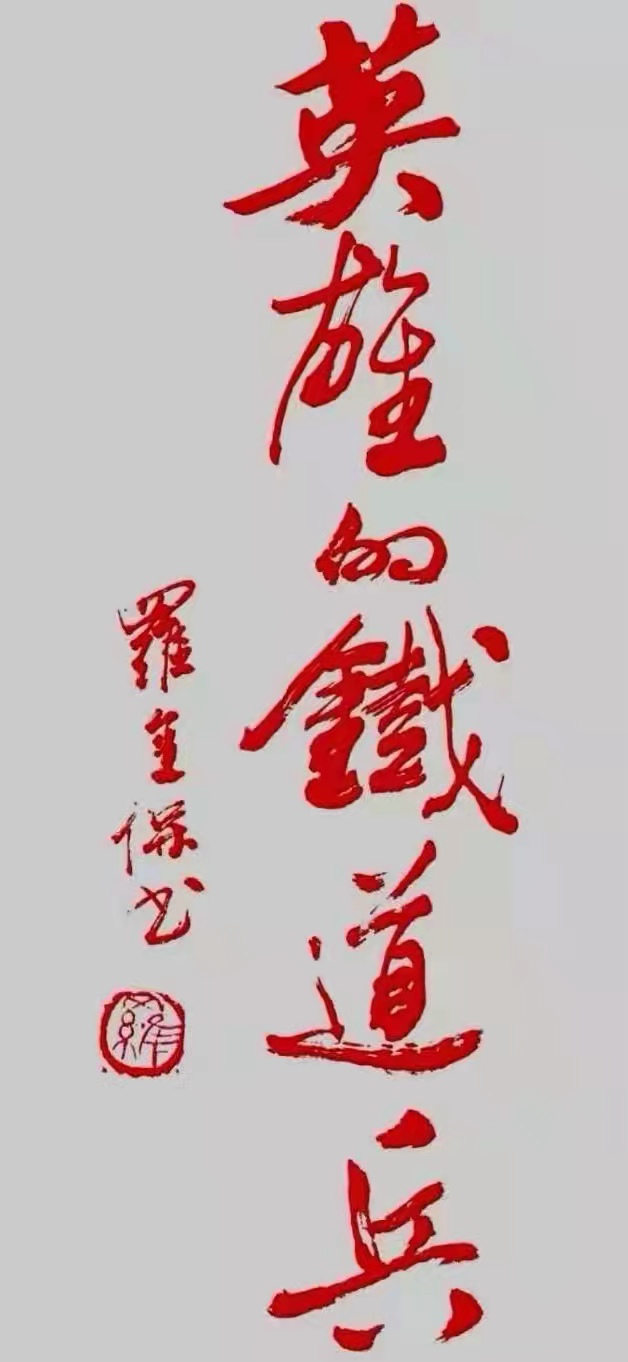 英雄的鐵道兵
羅金保书
羅